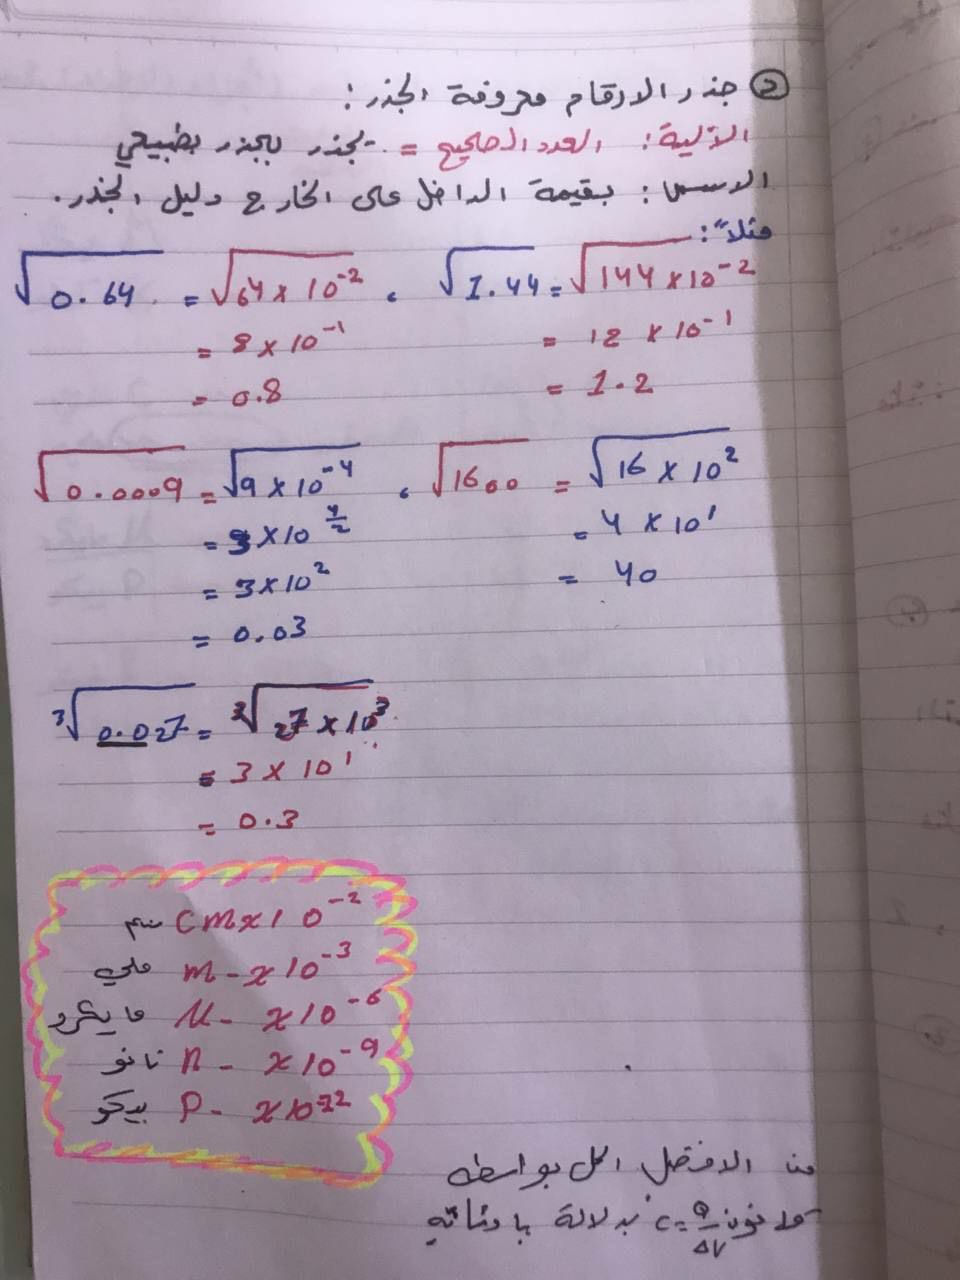 ② جذر الارقام معروفة الجذر :
الآلية : العدد الصحيح = يجذر بجذر بطبيعي
الاسس : بقيمة الداخل على الخارج دليل الجذر .
مثلاً :
√0.64 = √64 × 10⁻² ، √1.44 = √144 × 10⁻²
= 8 × 10⁻¹ = 12 × 10⁻¹
= 0.8 = 1.2
√0.0009 = √9 × 10⁻⁴ ، √1600 = √16 × 10²
= 3 × 10^4/2 = 4 × 10¹
= 3 × 10² = 40
= 0.03
³√0.027 = ³√27 × 10³
= 3 × 10¹
= 0.3
سم cm x 10⁻²
ملي m - x 10⁻³
مايكرو M - x 10⁻⁶
نانو n - x 10⁻⁹
بيكو P - x 10⁻¹²
الافضل الحل بواسطه
قانون c = Q/ΔV بدلالة